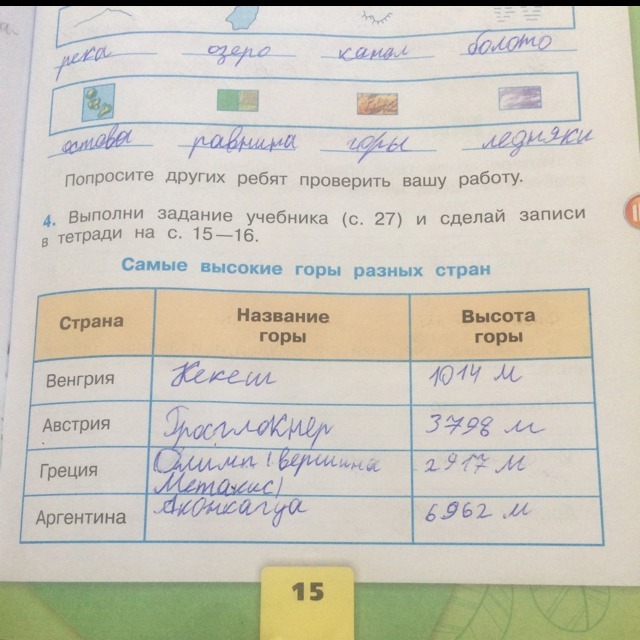 река озеро канал болото
остовы равнина горы ледняки
Попросите других ребят проверить вашу работу.
4. Выполни задание учебника (с. 27) и сделай записи
в тетради на с. 15—16.
Самые высокие горы разных стран
Страна Название горы Высота горы
Венгрия Кекеш 1014 м
Австрия Гросглокнер 3798 м
Греция Олимп (вершина 2917 м
Метакис)
Аргентина Аконкагуа 6962 м
15